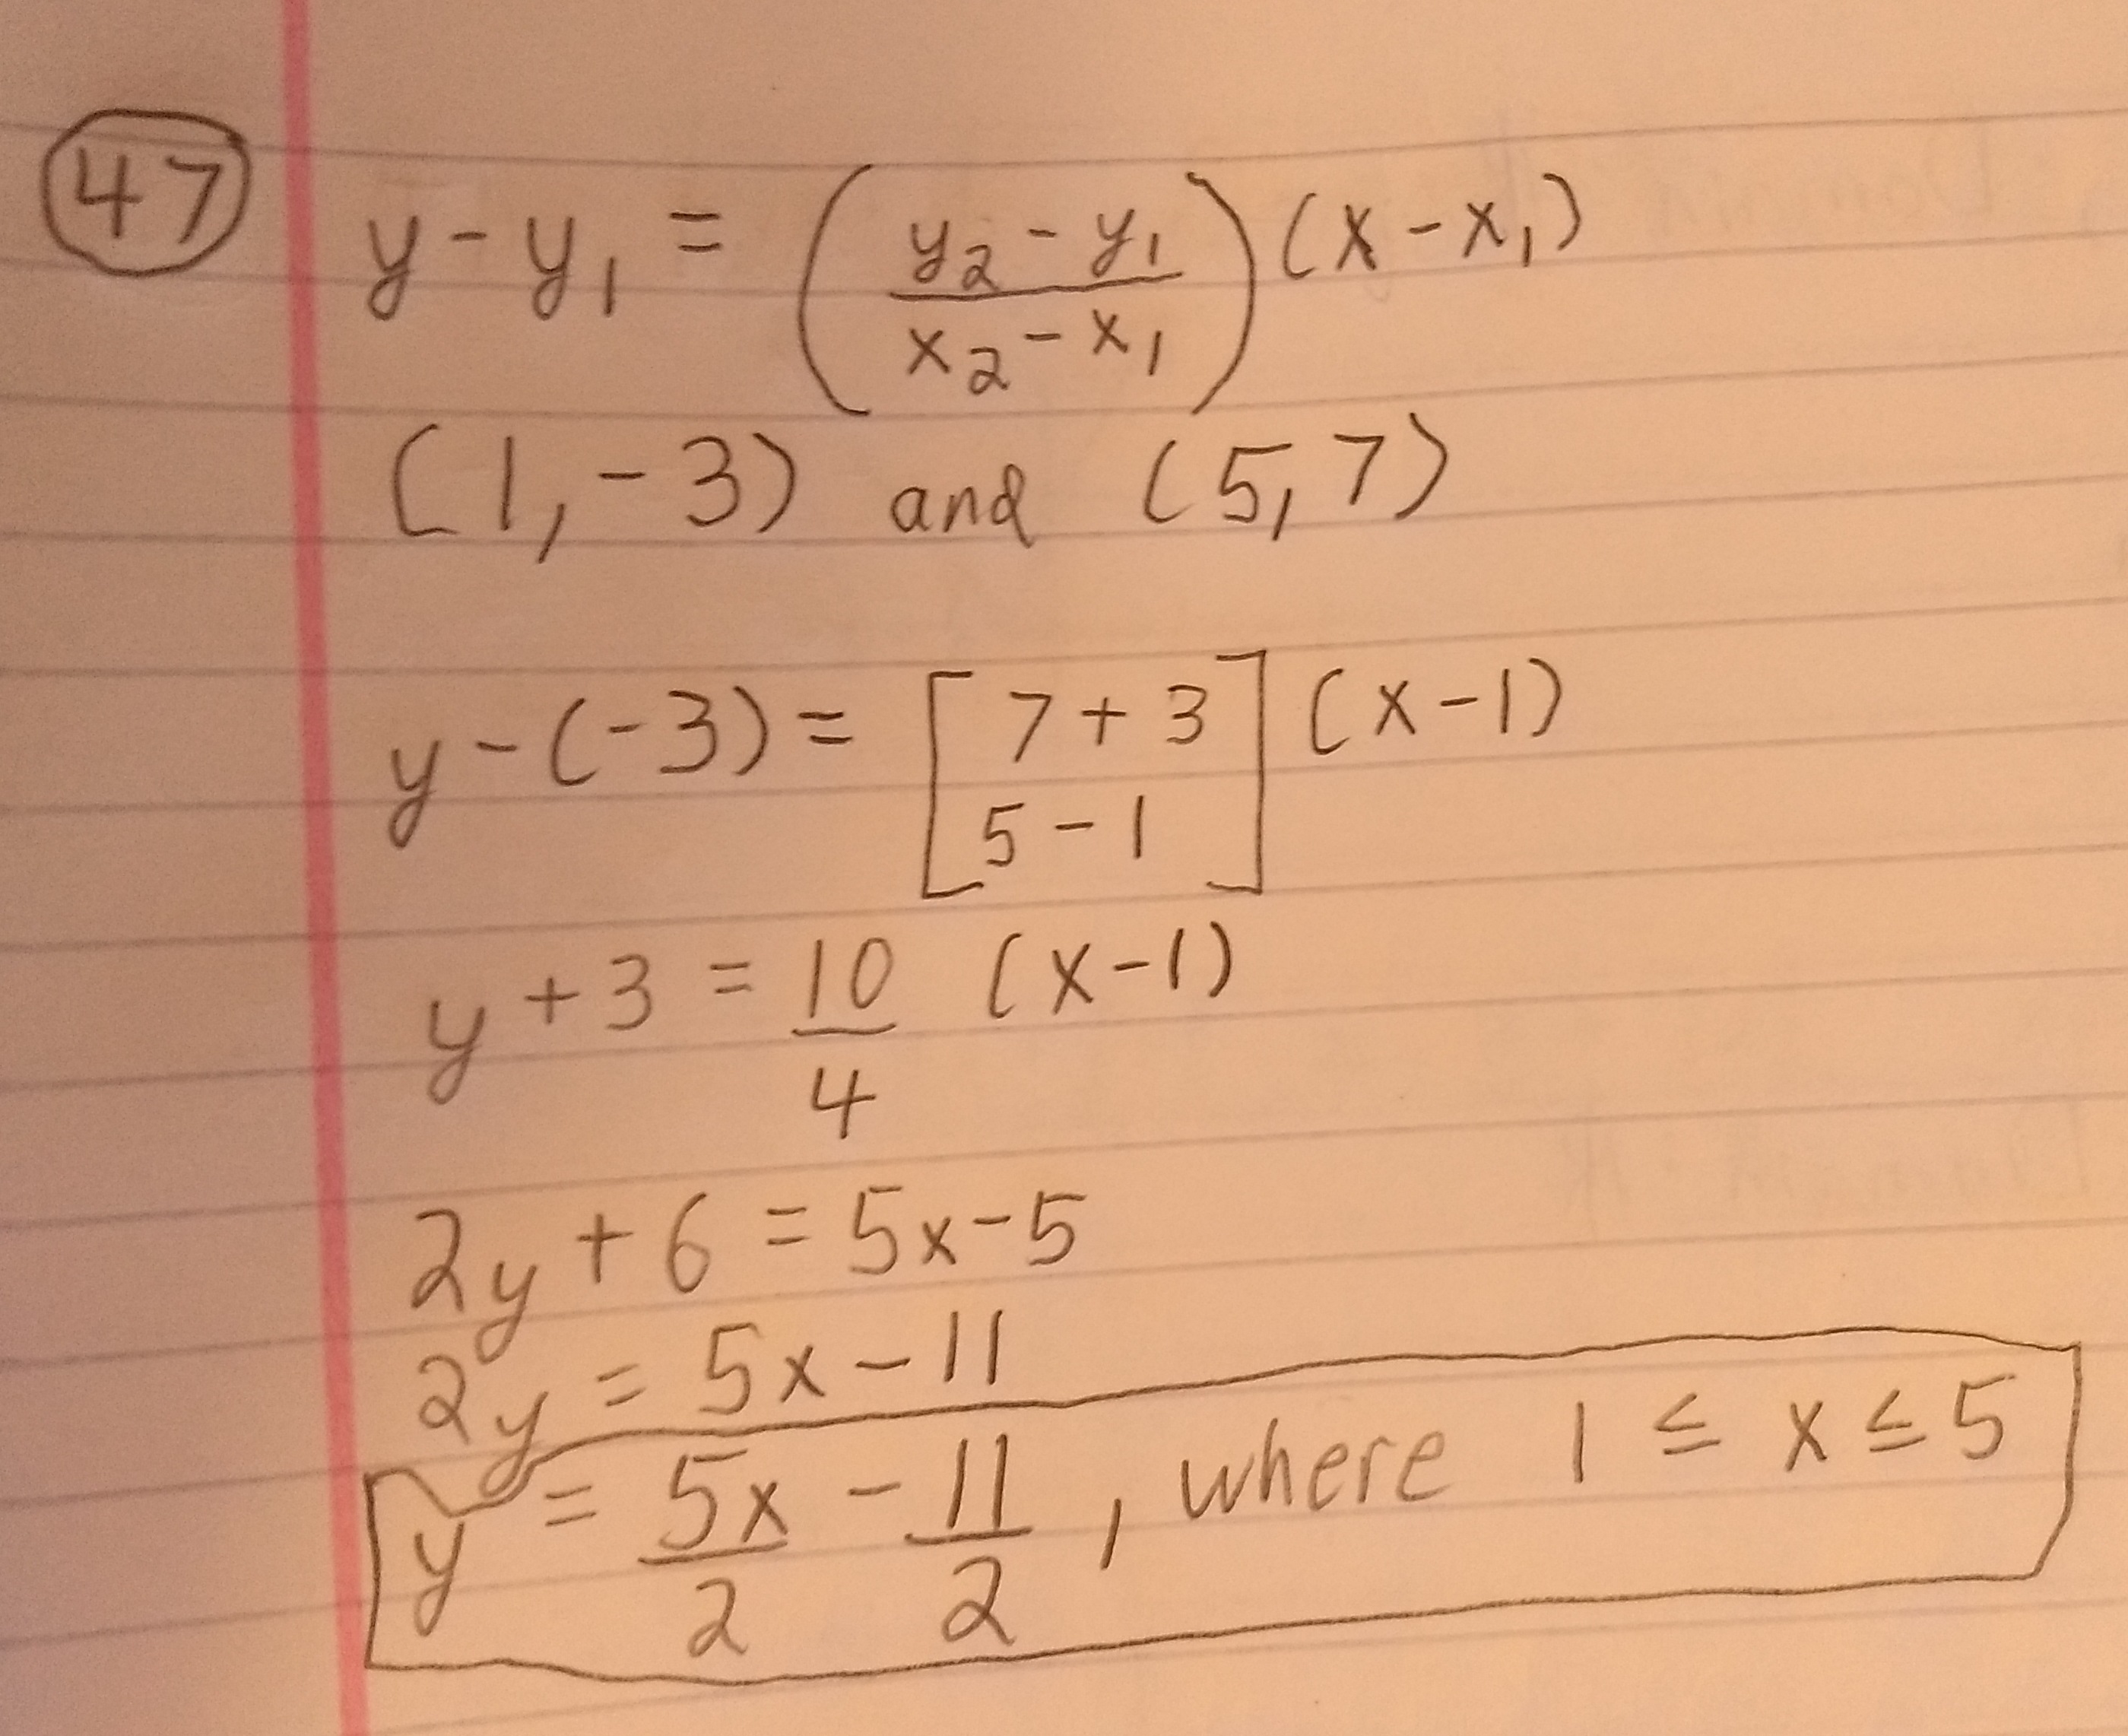 47 y - y₁ = (y₂ - y₁ / x₂ - x₁) (x - x₁)
(1, -3) and (5, 7)
y - (-3) = [7 + 3 / 5 - 1] (x - 1)
y + 3 = 10/4 (x - 1)
2y + 6 = 5x - 5
2y = 5x - 11
y = 5x/2 - 11/2, where 1 ≤ x ≤ 5